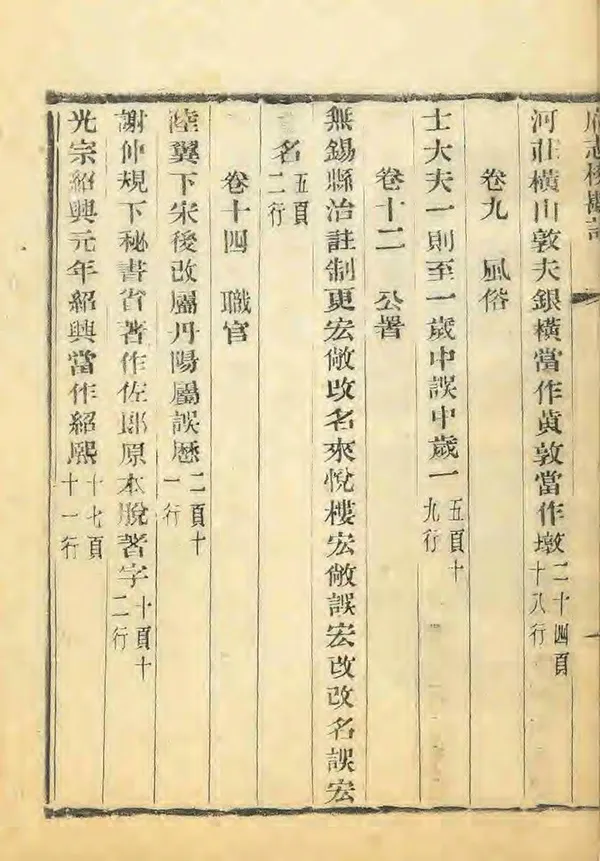 府志校勘記
河莊橫山敦夫銀橫當作黃敦當作墩二十四頁十八行
卷九 風俗
士大夫一則至一歲中誤中歲一五頁十九行
卷十二 公署
無錫縣治註制更宏敞改名來悅樓宏敞誤宏改改名誤宏
名五頁二行
卷十四 職官
陸翼下宋後改屬丹陽屬誤歷二頁十一行
謝仲規下秘書省著作佐郎原本脫著字十頁十二行
光宗紹興元年紹興當作紹熙十七頁十一行